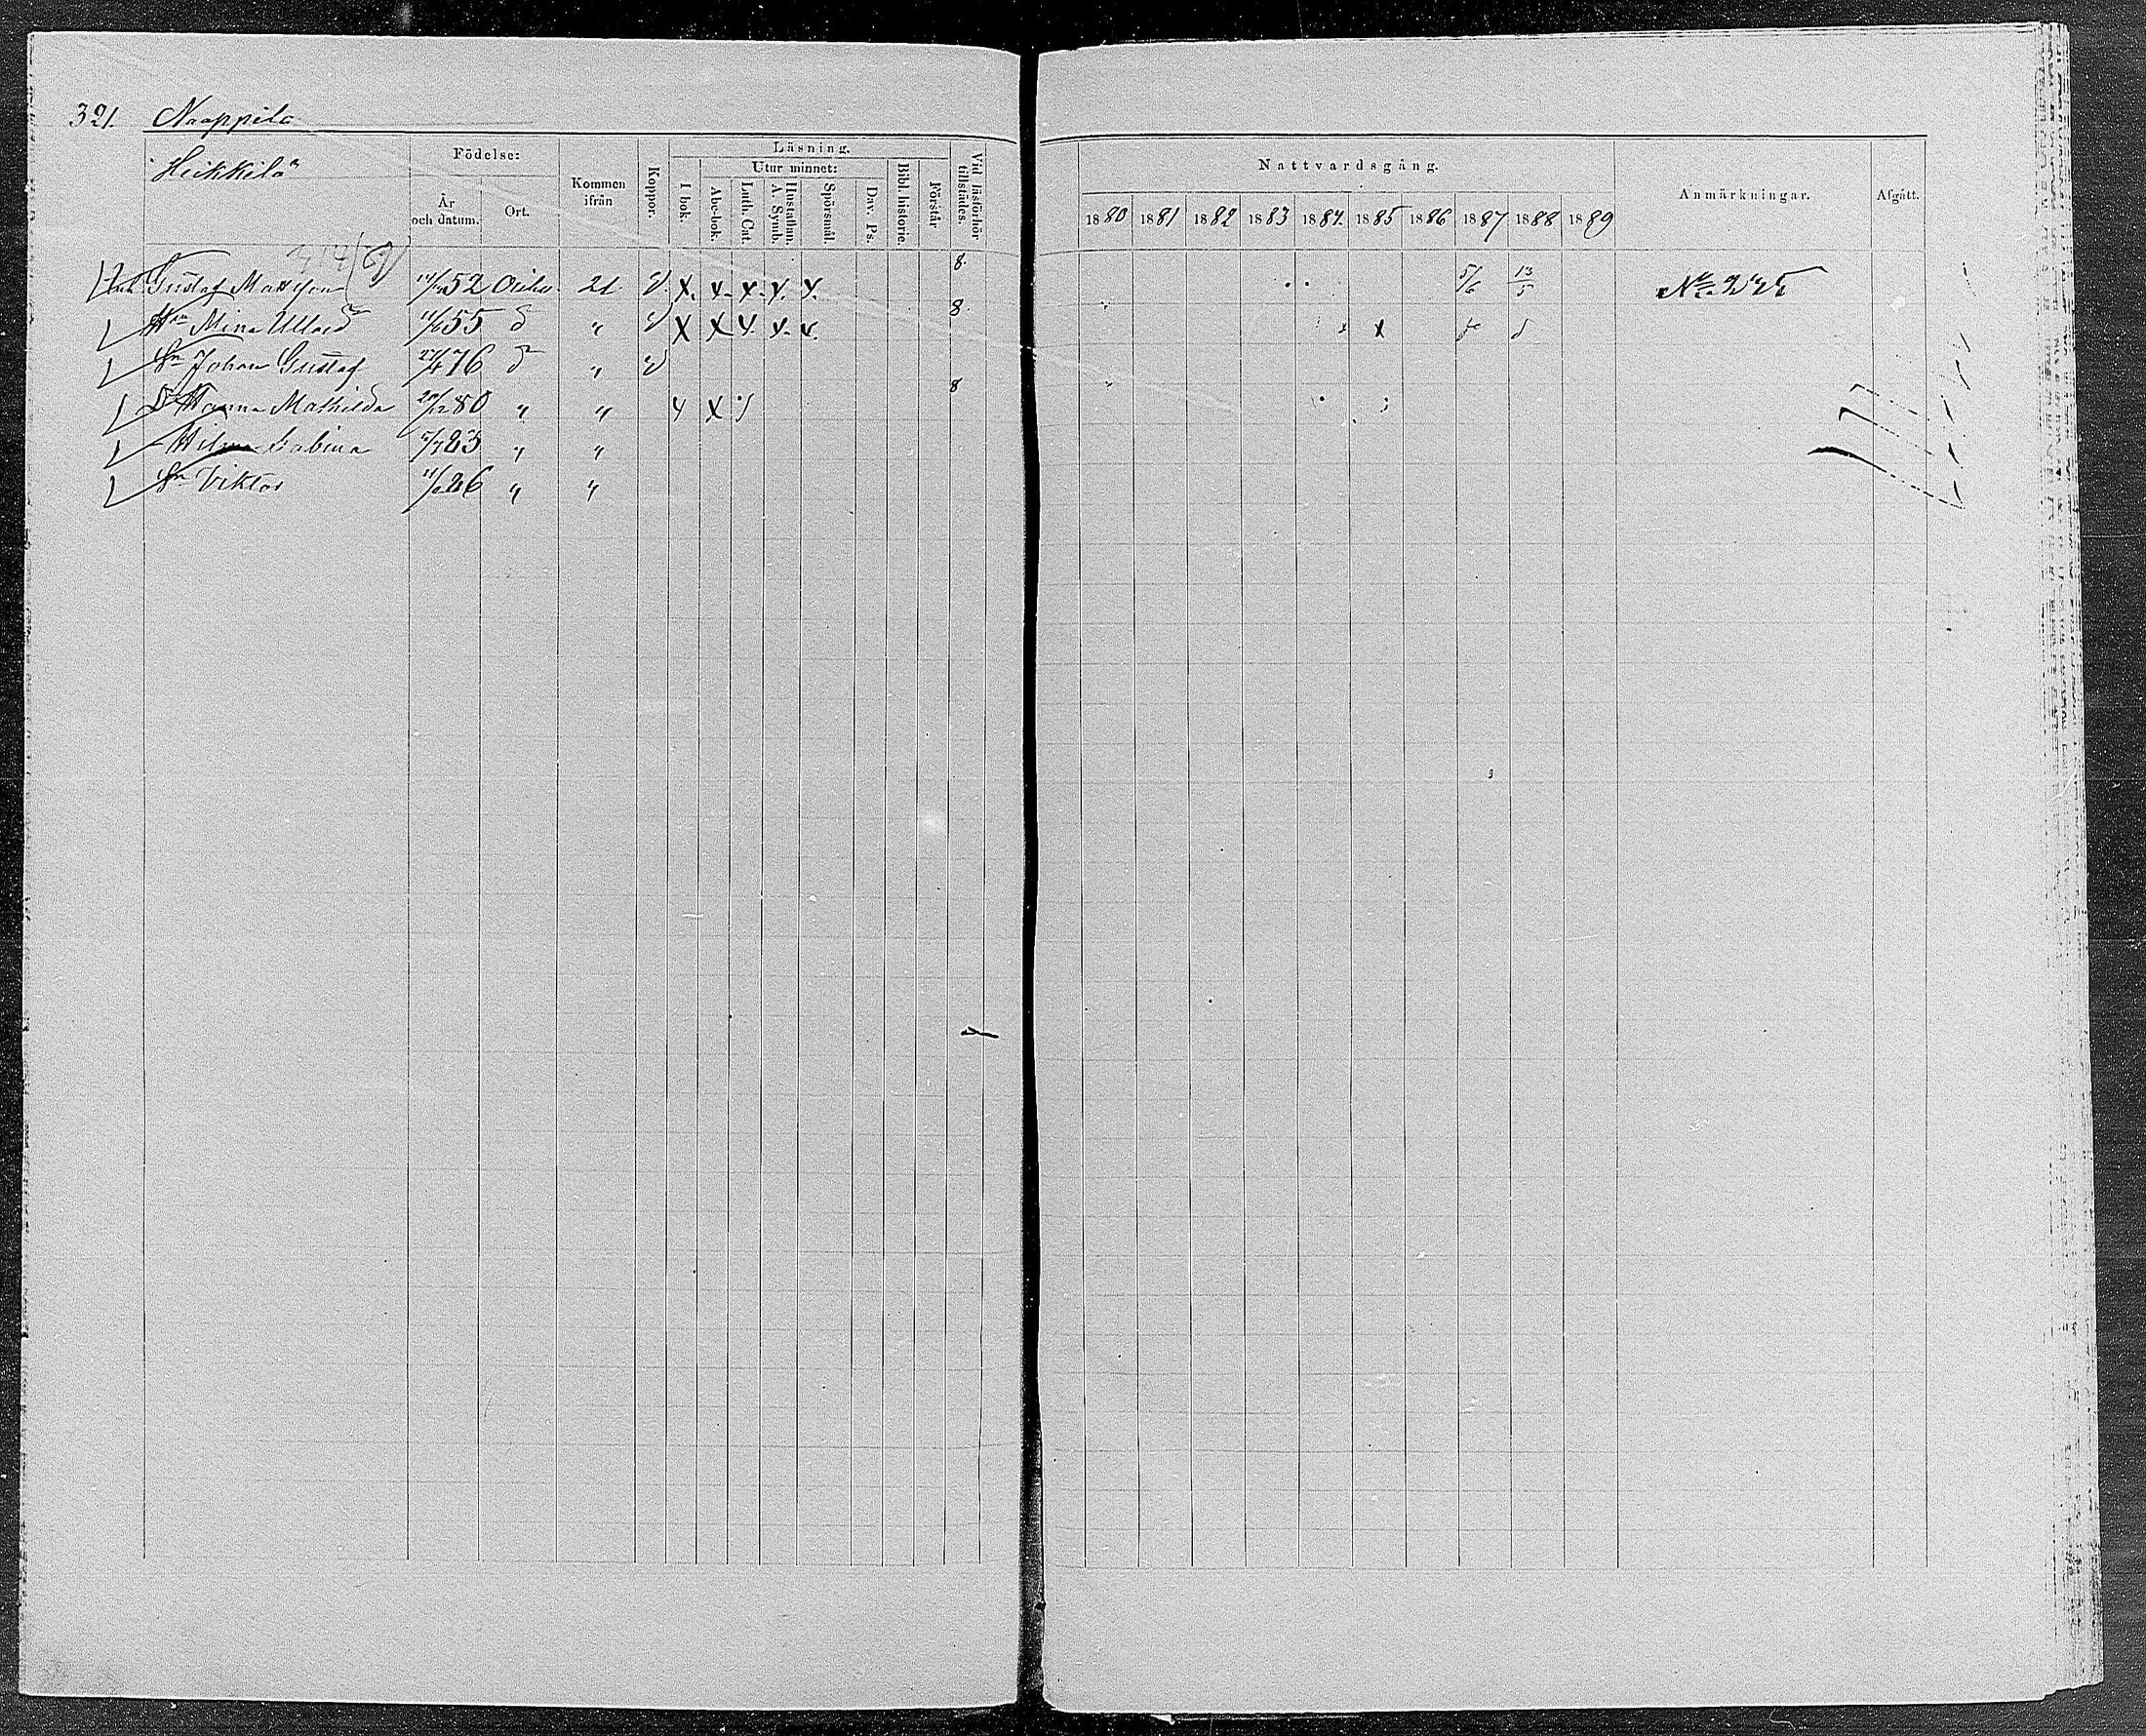 321. Naappila
Heikkilä
Födelse:
År och datum.
Ort.
Kommen ifrån
Koppor.
Läsning.
I bok.
Utur minnet:
Abc-bok.
Luth. Cat.
Hustaflan. A. Symb.
Spörsmål.
Dav. Ps.
Bibl. historie.
Förstår
Vid läsförhör tillstädes.
Nattvardsgång.
1880 1881 1882 1883 1884 1885 1886 1887 1888 1889
Anmärkningar.
Afgått.
Gustaf Mattsson 52 21 v X. x. x. x. x. 8. 5/6 13/5
Hu Mina Ullasd:r 55 d:o " v X X x. x. x. 8.
Sn Johan Gustaf 27/4 76 d:o " v
D. Hanna Mathilda 80 " " x X 8
Hilma Sabina 83 " "
Sn Viktor 86 " "